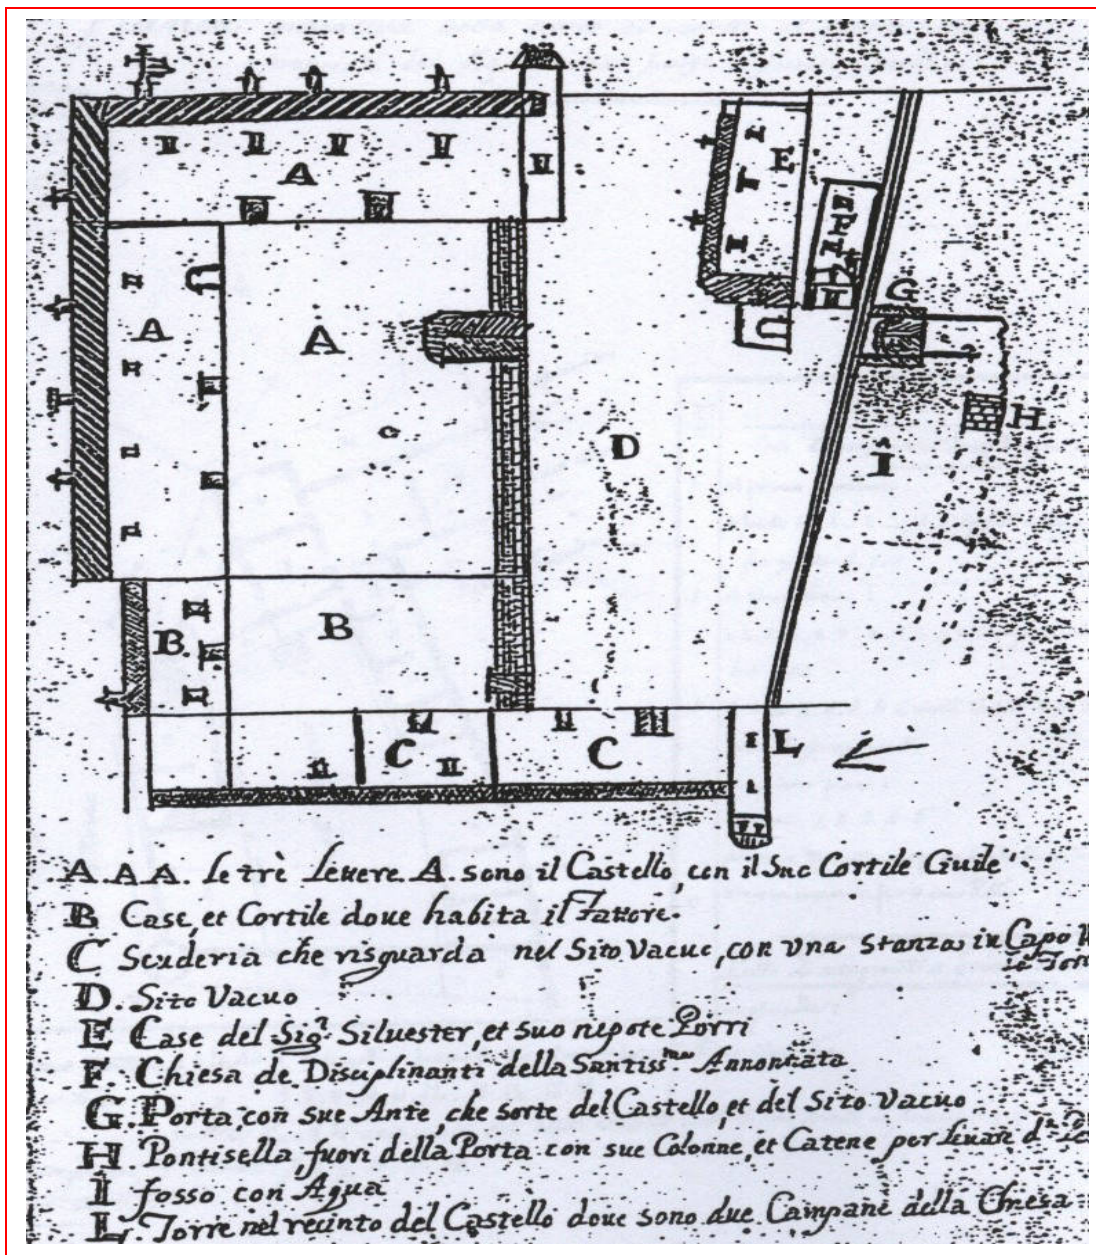 A
E
A
A
G
D
H
I
B.
B
C
C
L
A. A A. le trè lettere A. sono il Castello, con il suo Cortile Ciuile
B Case, et Cortile doue habita il Fattore.
C Scuderia che risguarda nel Sito Vacuo, con Vna stanza in Capo
D. Sito Vacuo
E Case del Sig.r Siluester, et suo nepote Porri
F. Chiesa de Disciplinanti della Santiss.ma Annontiata
G. Porta con sue Ante, che sorte del Castello, et del Sito Vacuo
H. Pontisella, fuori della Porta con sue Colonne, et Catene per leuar d.
I fosso con Aqua
L. Torre nel recinto del Castello doue sono due Campane della Chiesa